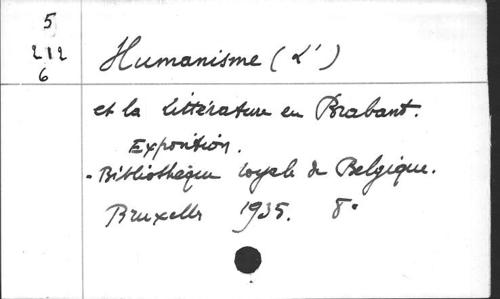 5
212
6
Humanisme (L')
et la littérature en Brabant.
Exposition.
- Bibliothèque royale de Belgique.
Bruxelles 1935. 8°